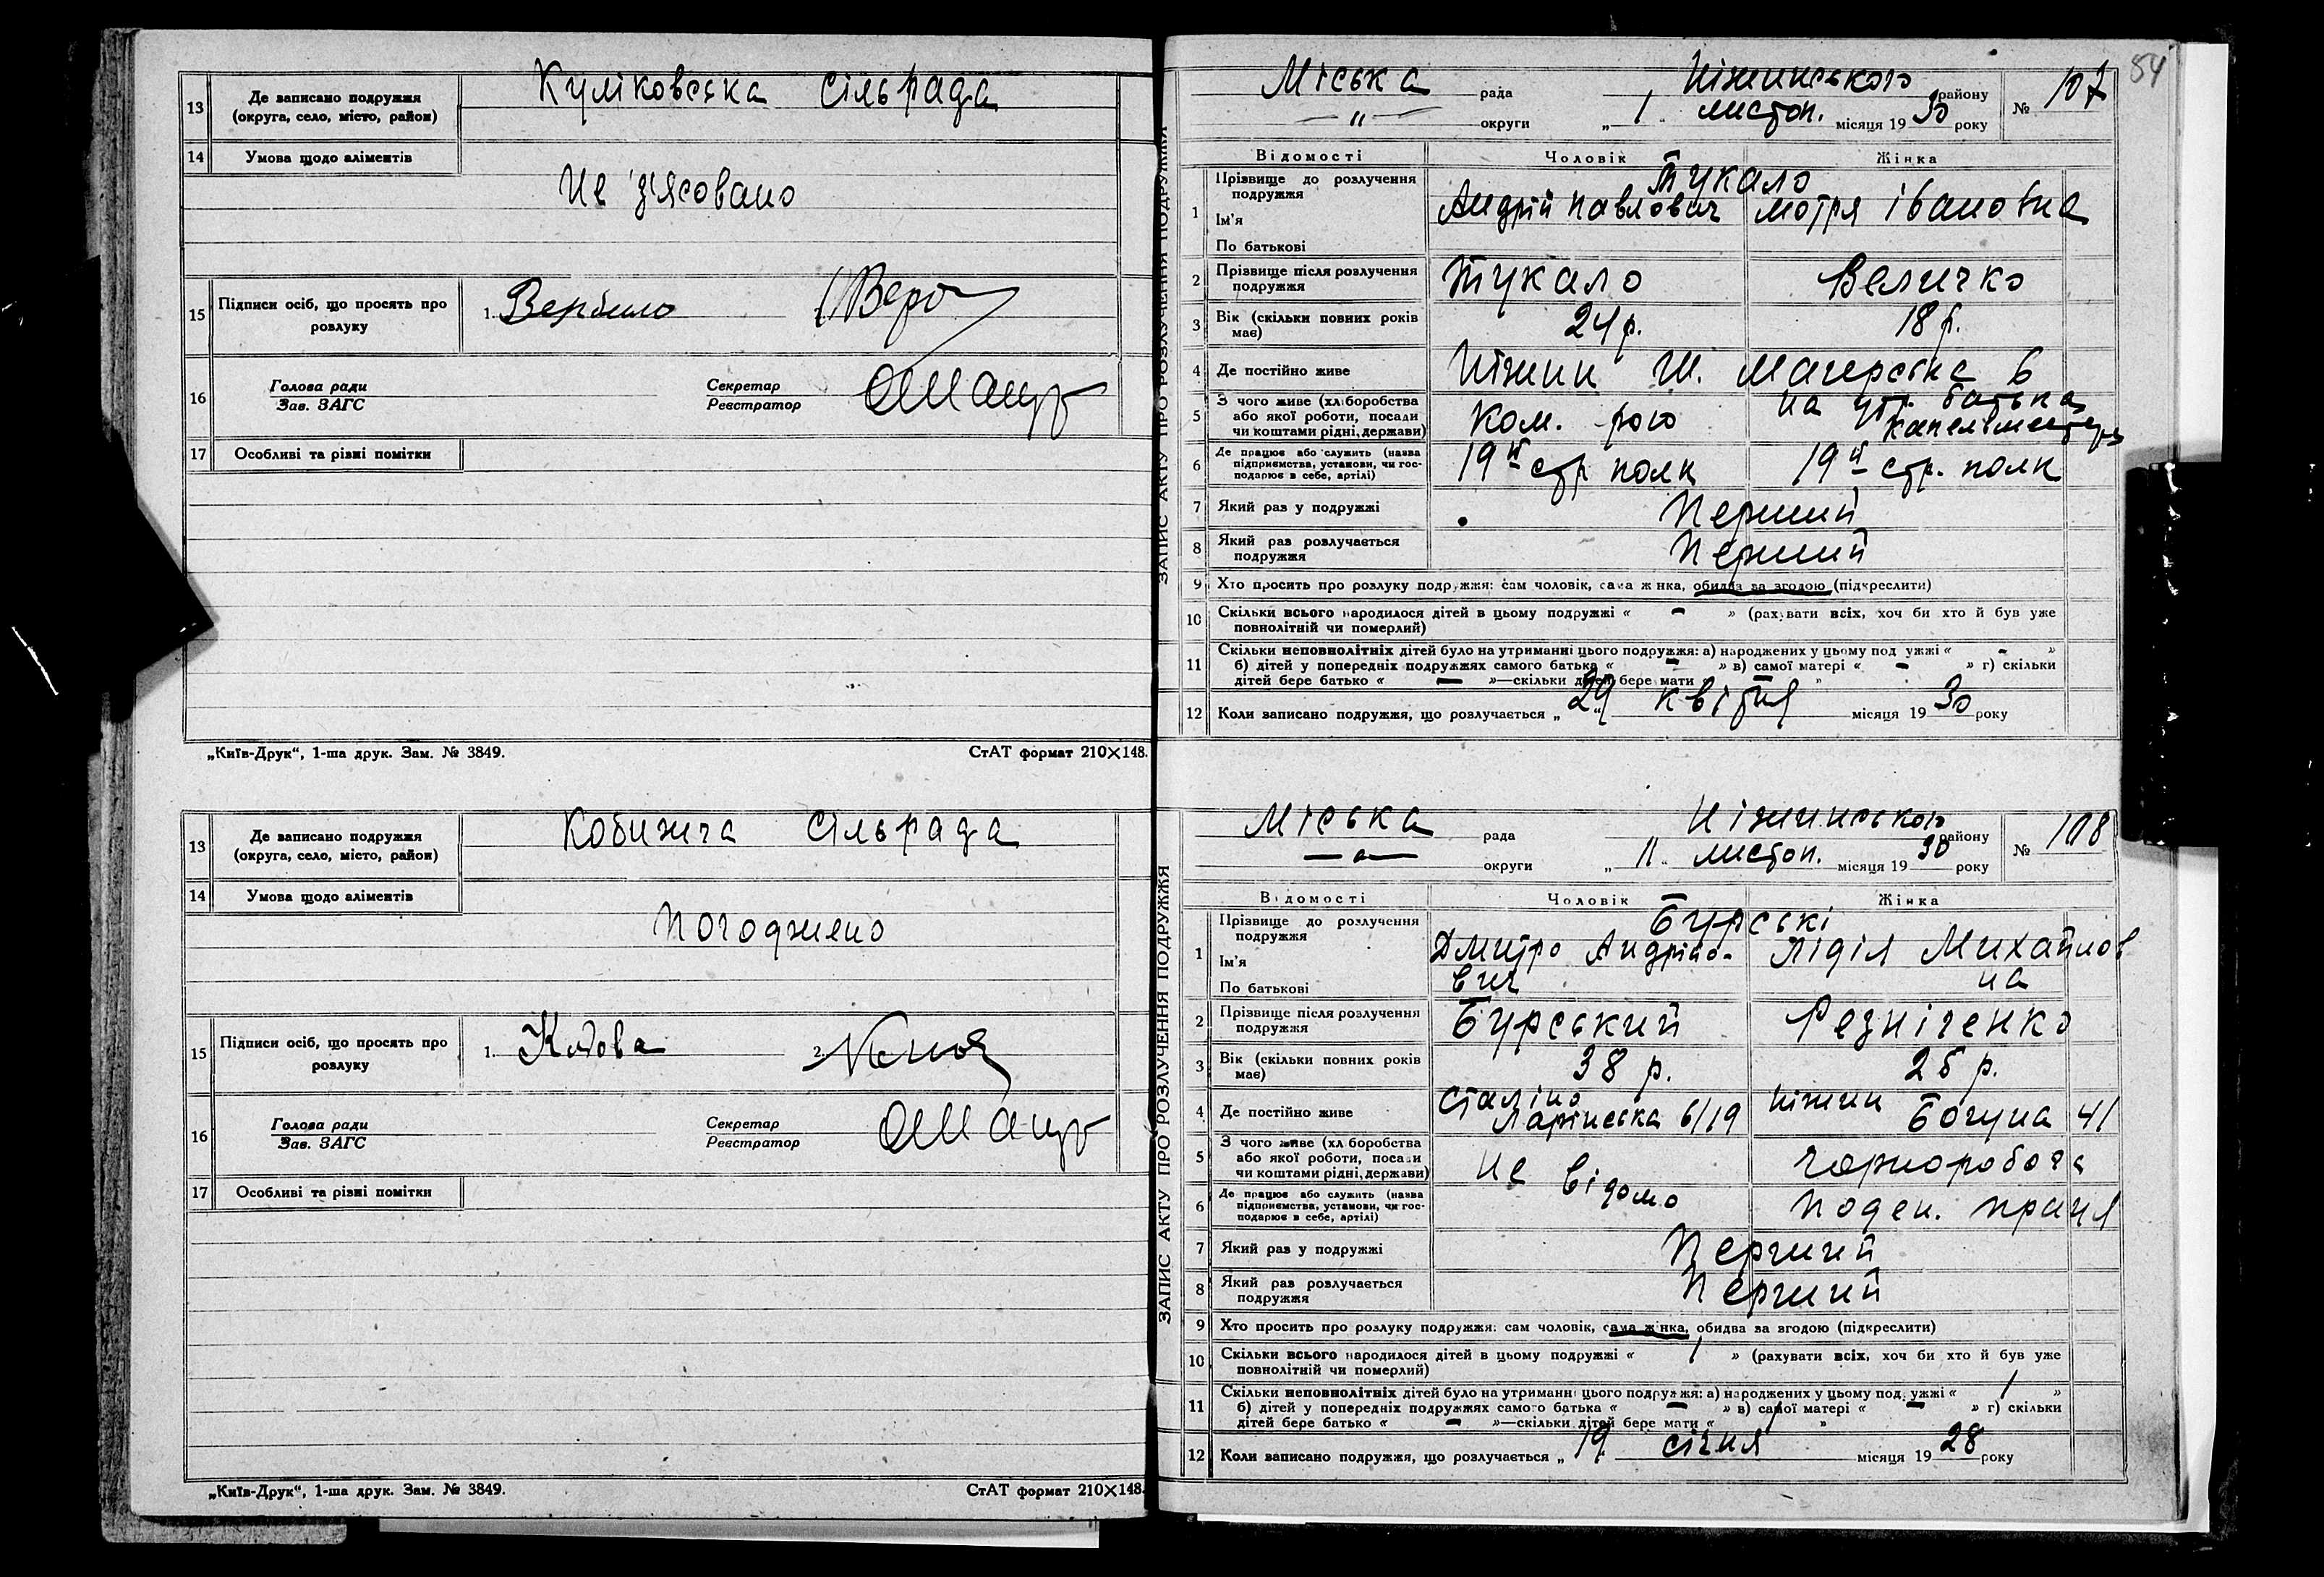 13 Де записано подружжя (округа, село, місто, район) Куліковська сільрада
14 Умова щодо аліментів
Не з'ясовано
15 Підписи осіб, що просять про розлуку 1.
16 Голова ради Зав. ЗАГС Секретар Реєстратор
17 Особливі та різні помітки
„Київ-Друк“, 1-ша друк. Зам. № 3849. СтАТ формат 210×148.
13 Де записано подружжя (округа, село, місто, район) Кобижча сільрада
14 Умова щодо аліментів
Погоджено
15 Підписи осіб, що просять про розлуку 1. 2.
16 Голова ради Зав. ЗАГС Секретар Реєстратор
17 Особливі та різні помітки
„Київ-Друк“, 1-ша друк. Зам. № 3849. СтАТ формат 210×148.
ЗАПИС АКТУ ПРО РОЗЛУЧЕННЯ ПОДРУЖЖЯ
84
Міська рада Ніжинського району № 107
— „ — округи „ 1 листоп. місяця 1930 року
Відомості Чоловік Жінка
1 Прізвище до розлучення подружжя Тукало
Ім'я Андрій Павлович Мотря Івановна
По батькові
2 Прізвище після розлучення подружжя Тукало Величко
3 Вік (скільки повних років має) 24 р. 18 р.
4 Де постійно живе Ніжин Ш. Магерська 6
5 З чого живе (хліборобства або якої роботи, посади чи коштами рідні, держави) Ком. на утр. батька капельмейстера
6 Де працює або служить (назва підприємства, установи, чи господарює в себе, артілі) 19й стр полк 19й стр. полк
7 Який раз у подружжі Перший
8 Який раз розлучається подружжя Перший
9 Хто просить про розлуку подружжя: сам чоловік, сама жінка, обидва за згодою (підкреслити)
10 Скільки всього народилося дітей в цьому подружжі « – » (рахувати всіх, хоч би хто й був уже
повнолітній чи померлий)
11 Скільки неповнолітніх дітей було на утриманні цього подружжя: а) народжених у цьому подружжі « – »
б) дітей у попередніх подружжях самого батька « – » в) самої матері « – » г) скільки
дітей бере батько « — »—скільки дітей бере мати « – »
12 Коли записано подружжя, що розлучається „ 29 “ квітня місяця 1930 року
ЗАПИС АКТУ ПРО РОЗЛУЧЕННЯ ПОДРУЖЖЯ
Міська рада Ніжинського району № 108
— „ — округи „ 11 листоп. місяця 1930 року
Відомості Чоловік Жінка
1 Прізвище до розлучення подружжя Бурські
Ім'я Дмитро Андрійо- Лідія Михайлов
По батькові вич на
2 Прізвище після розлучення подружжя Бурський Резніченко
3 Вік (скільки повних років має) 38 р. 25 р.
4 Де постійно живе Сталіно Ларінська 6/19 Ніжин Богуна 41
5 З чого живе (хліборобства або якої роботи, посади чи коштами рідні, держави) не відомо чорноробоча
6 Де працює або служить (назва підприємства, установи, чи господарює в себе, артілі) поден. праця
7 Який раз у подружжі Перший
8 Який раз розлучається подружжя Перший
9 Хто просить про розлуку подружжя: сам чоловік, сама жінка, обидва за згодою (підкреслити)
10 Скільки всього народилося дітей в цьому подружжі « 1 » (рахувати всіх, хоч би хто й був уже
повнолітній чи померлий)
11 Скільки неповнолітніх дітей було на утриманні цього подружжя: а) народжених у цьому подружжі « 1 »
б) дітей у попередніх подружжях самого батька « – » в) самої матері « – » г) скільки
дітей бере батько « – »—скільки дітей бере мати « 1 »
12 Коли записано подружжя, що розлучається „ 19 січня місяця 1928 року